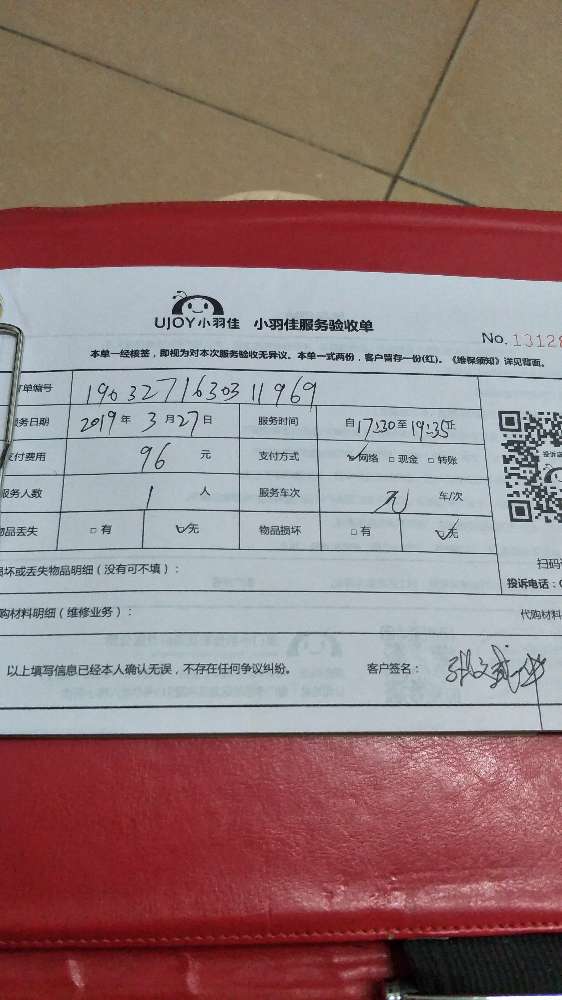 UJOY小羽佳 小羽佳服务验收单
No.13128
本单一经核签，即视为对本次服务验收无异议。本单一式两份，客户留存一份(红)。《维保须知》详见背面。
单编号 190327163031 1969
务日期 2019年3月27日 服务时间 自17:30至19:35止
付费用 96元 支付方式 网络 □现金 □转账
服务人数 1人 服务车次 无 车/次
物品丢失 □有 无 物品损坏 □有 无
损坏或丢失物品明细（没有可不填）：
扫码
投诉电话：
购材料明细（维修业务）：
代购材料
以上填写信息已经本人确认无误，不存在任何争议纠纷。 客户签名：